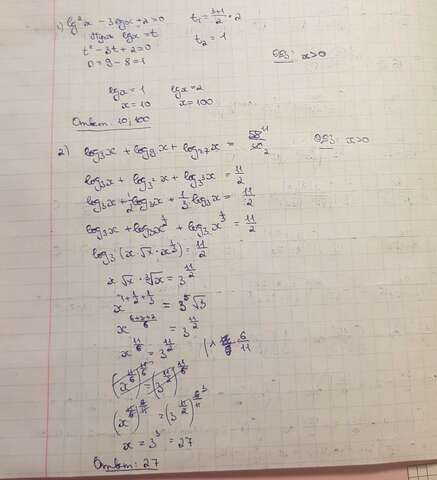 1) lg²x - 3lgx + 2 = 0    t₁ = (3+1)/2 = 2
Пусть lgx = t    t₂ = 1
t² - 3t + 2 = 0
D = 9 - 8 = 1    ОДЗ: x>0
lgx = 1    lgx = 2
x = 10    x = 100
Ответ 10; 100
2) log₃x + log₉x + log₂₇x = 11/2    ОДЗ: x>0
log₃x + log₃²x + log₃³x = 11/2
log₃x + 1/2 log₃x + 1/3 log₃x = 11/2
log₃x + log₃x^(1/2) + log₃x^(1/3) = 11/2
log₃(x·√x·x^(1/3)) = 11/2
x·√x·³√x = 3^(11/2)
x^(1+1/2+1/3) = 3⁵√3
x^((6+3+2)/6) = 3^(11/2)
x^(11/6) = 3^(11/2)    (^ 6/11
(x^(11/6))^(6/11) = (3^(11/2))^(6/11)
x = 3³ = 27
Ответ: 27